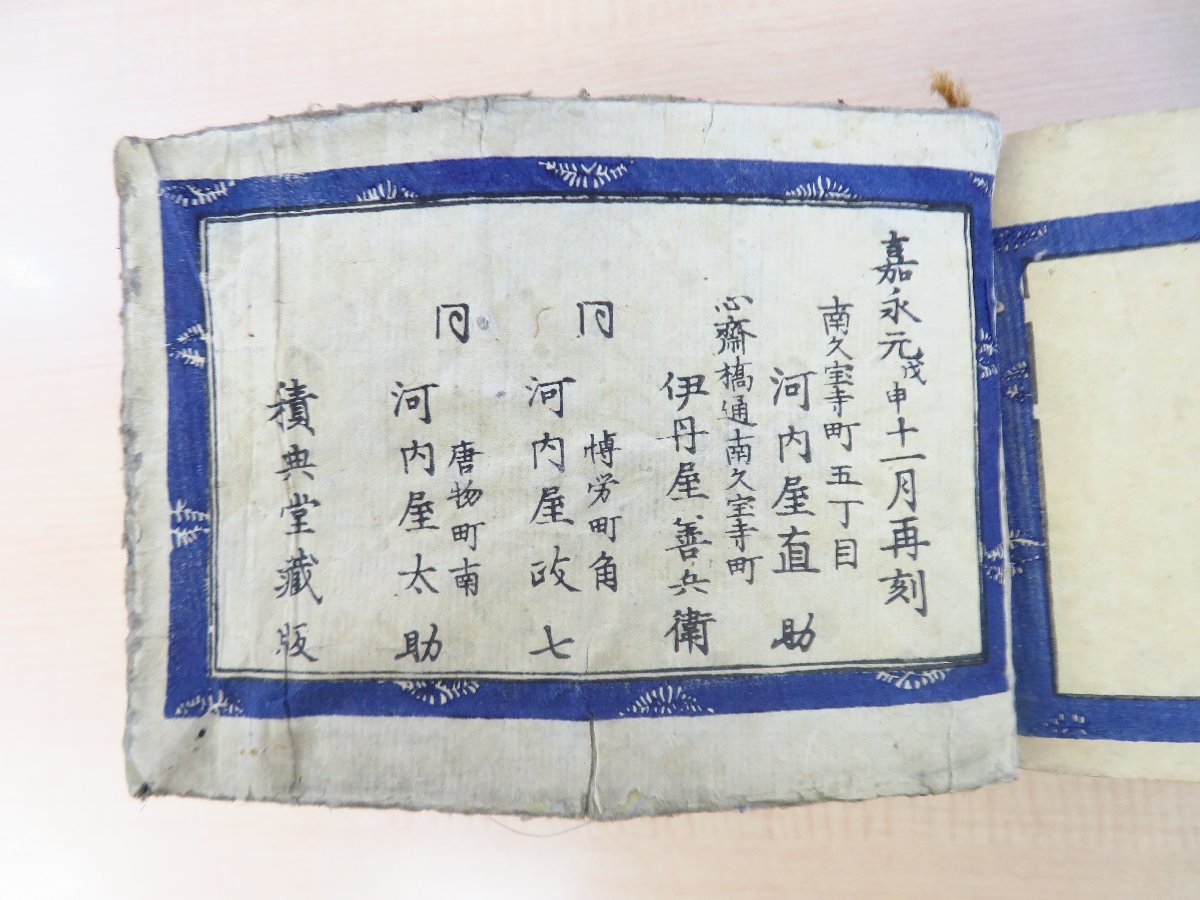 嘉永元戊申十一月再刻
南久宝寺町五丁目
河内屋直助
心齋橋通南久宝寺町
伊丹屋善兵衛
同
博労町角
河内屋政七
同
唐物町南
河内屋太助
積典堂藏版